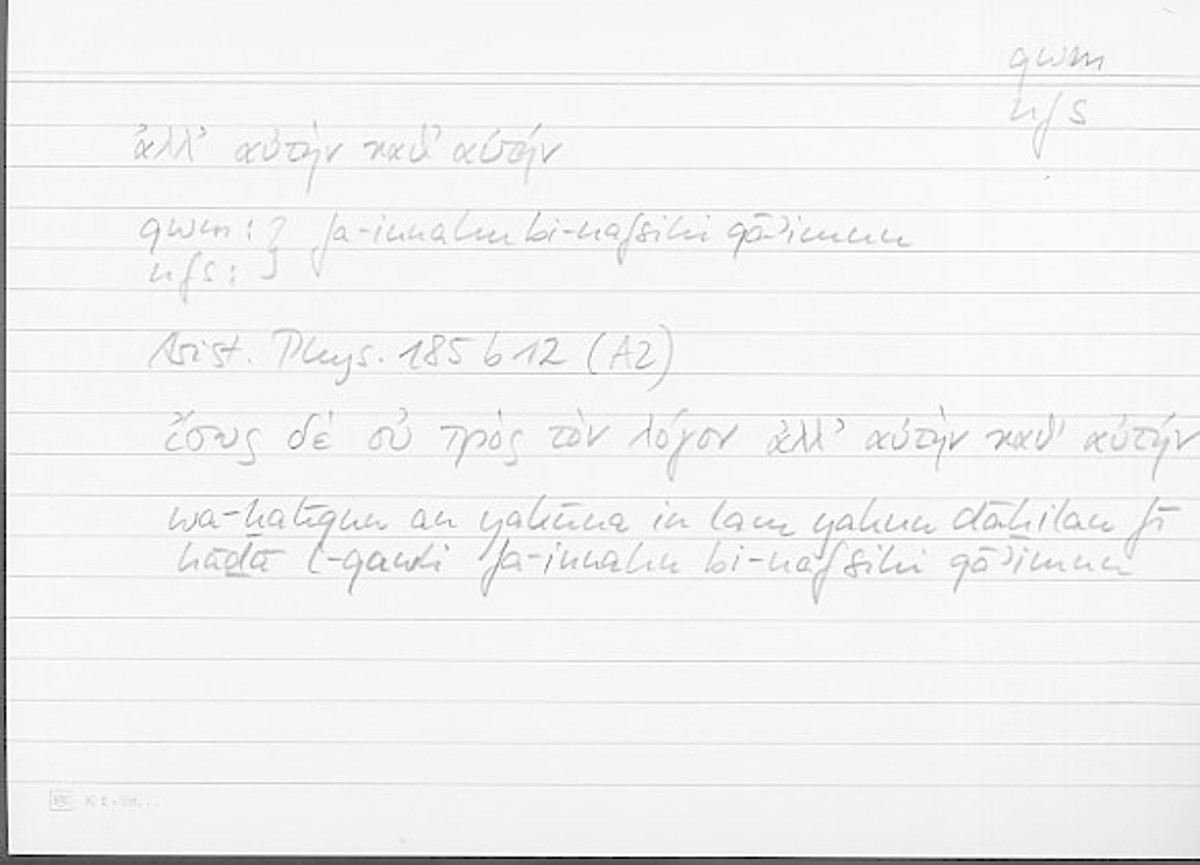 qwm
nfs
ἀλλ’ αὐτὴν καθ’ αὑτήν
qwm: } fa-innahu bi-nafsihi qāʾimun
nfs: }
Arist. Phys. 185 b 12 (A2)
ἴσως δὲ οὐ πρὸς τὸν λόγον ἀλλ’ αὐτὴν καθ’ αὑτήν
wa-ḫalīqun an yakūna in lam yakun dāḫilan fī
hāḏā l-qawli fa-innahu bi-nafsihi qāʾimun